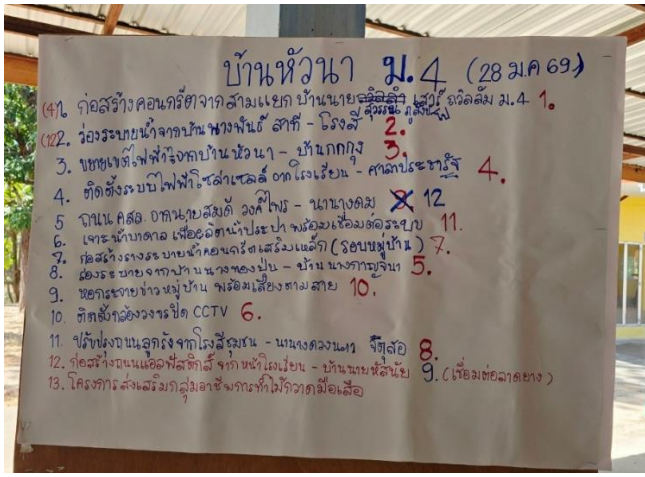 บ้านหัวนา ม.4 (28 ม.ค 69)
(4) 1. ก่อสร้างคอนกรีตจากสามแยกบ้านนาย เสาร์ ถวิลลัม ม.4 1.
สุวรรณ์
(12) 2. ร่องระบายน้ำจากบ้านนางพันธ์ สาที - โรงสี 2.
3. ขยายเขตไฟฟ้าจากบ้านหัวนา - บ้านกกกุง 3.
4. ติดตั้งระบบไฟฟ้าโซล่าเซลล์ จากโรงเรียน - ศาลาประชารัฐ 4.
5 ถนน คสล. จากนายสมดี วงค์ไพร - นานางดม 12
6. เจาะน้ำบาดาล เพื่อผลิตน้ำประปาพร้อมเชื่อมต่อระบบ 11.
7. ก่อสร้างรางระบายน้ำคอนกรีตเสริมเหล็ก (รอบหมู่บ้าน) 7.
8. ร่องระบายจากบ้านนางทองปุ่น - บ้านนางกาญจนา 5.
9. หอกระจายข่าวหมู่บ้าน พร้อมเสียงตามสาย 10.
10. ติดตั้งกล้องวงจรปิด CCTV 6.
11. ปรับปรุงถนนลูกรังจากโรงสีชุมชน - นานางดวงนภา จัตุสอ 8.
12. ก่อสร้างถนนแอลฟัสติกส์ จากหน้าโรงเรียน - บ้านนายหัสนัย 9. (เชื่อมต่อลาดยาง)
13. โครงการส่งเสริมกลุ่มอาชีพการทำไม้กวาดมือเสือ